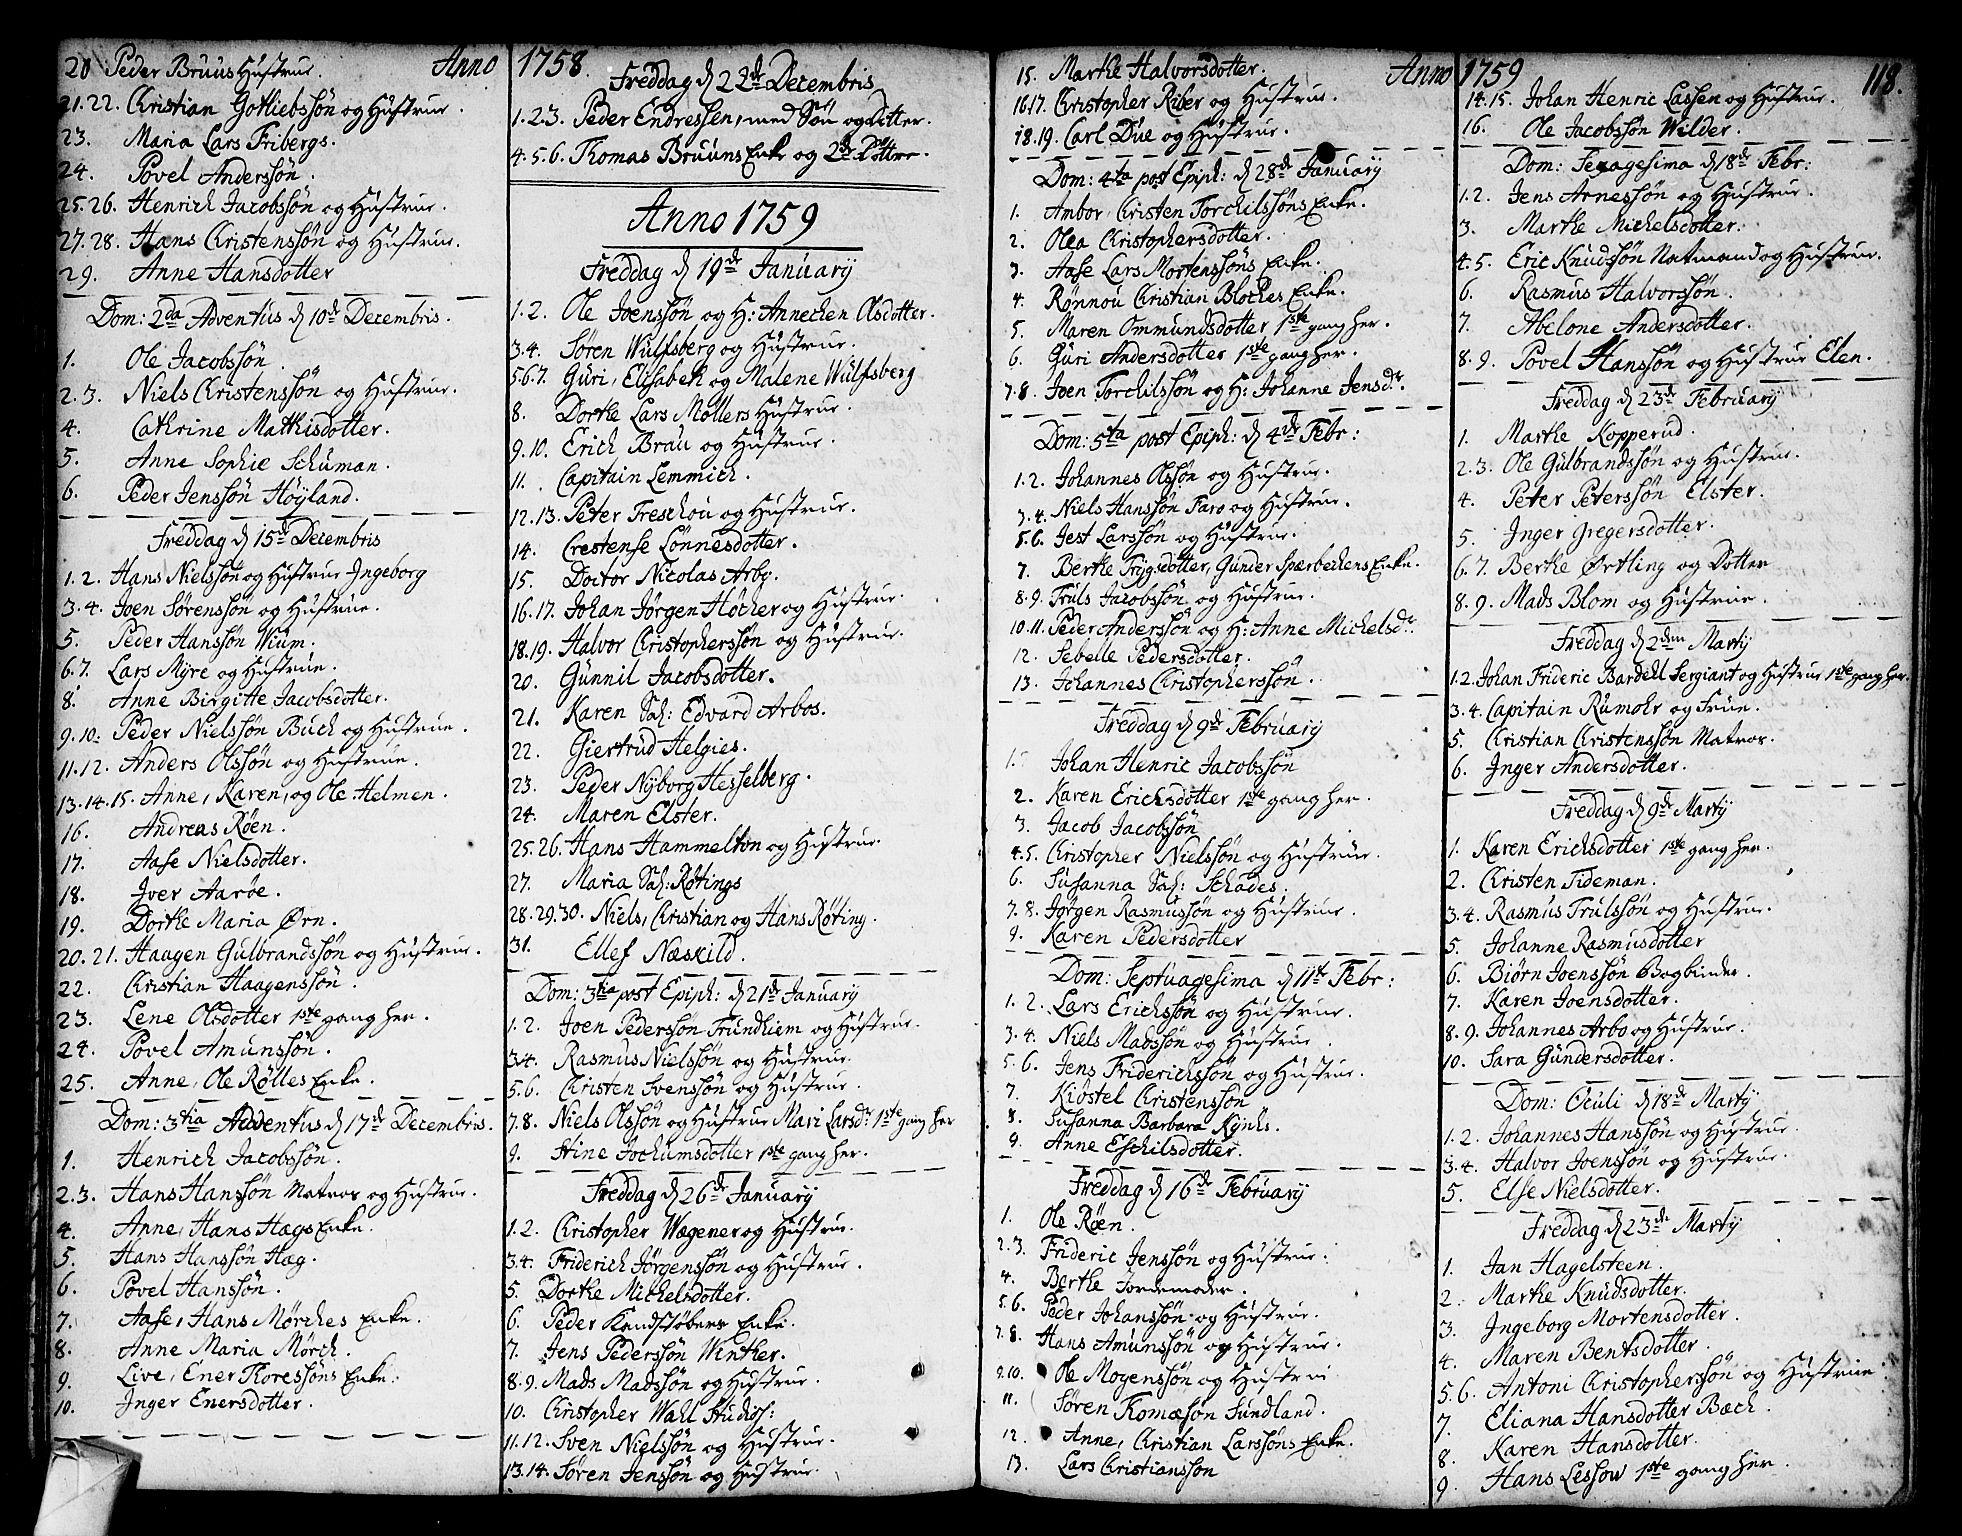 Anno 1758
20 Peder Bruus Hustrue.
21.22. Christian Gotliebssøn og Hustrue.
23. Maria Lars Fribergs.
24. Povel Anderssøn.
25.26. Henrich Jacobssøn og Hustrue.
27.28. Hans Christenssøn og Hustrue.
29. Anne Hansdotter
Dom: 2da Adventus d 10de Decembris.
1. Ole Jacobssøn.
2.3. Niels Christenssøn og Hustrue.
4. Cathrine Mathisdotter.
5. Anne Sophie Schuman.
6. Peder Jenssøn Höyland.
Freddag d 15de Decembris
1.2. Hans Nielssøn og Hustrue Ingeborg
3.4. Joen Sørenssøn og Hustrue.
5. Peder Hanssøn Wium.
6.7. Lars Myre og Hustrue.
8. Anne Birgitte Jacobsdotter.
9.10. Peder Nielssøn Buch og Hustrue.
11.12. Anders Olssøn og Hustrue.
13.14.15. Anne, Karen, og Ole Helmen.
16. Andreas Röen.
17. Aase Nielsdotter.
18. Iver Aaröe.
19. Dorthe Maria Ørn.
20.21. Haagen Gulbrandssøn og Hustrue.
22. Christian Haagenssøn.
23. Lene Olsdotter 1ste gang her.
24. Povel Amunssøn.
25. Anne, Ole Rölles Enke.
Dom: 3tia Adventus d 17de Decembris.
1. Henrich Jacobssøn.
2.3. Hans Hanssøn Matros og Hustrue.
4. Anne, Hans Hægs Enke.
5. Hans Hanssøn Hæg.
6. Povel Hanssøn.
7. Aase, Hans Mörches Enke.
8. Anne Maria Mörch.
9. Live, Ener Thoressøns Enke.
10. Inger Enersdotter.
Freddag d 22de Decembris
1.2.3. Peder Endressen, med Søn og Dotter.
4.5.6. Thomas Bruuns Enke og 2de Döttre.
Anno 1759
Freddag d 19de January
1.2. Ole Joenssøn og H: Annechen Olsdotter.
3.4. Søren Wulfsberg og Hustrue.
5.6.7. Guri, Elisabeth og Malene Wulfsberg
8. Dorthe Lars Møllers Hustrue.
9.10. Erich Brau og Hustrue.
11. Capitain Lemmich.
12.13. Peter Treschou og Hustrue.
14. Crestense Lönnesdotter.
15. Doctor Nicolas Arbo.
16.17. Johan Jörgen Höcher og Hustrue.
18.19. Halvor Christopherssøn og Hustrue.
20. Gunnil Jacobsdotter.
21. Karen Sal: Edvard Arbos.
22. Giertrud Helgies.
23. Peder Nyborg Hesselberg.
24. Maren Elster.
25.26. Hans Hammelton og Hustrue.
27. Maria Sal: Rötings
28.29.30. Niels, Christian og Hans Röting.
31. Ellef Næskild.
Dom: 3tia post Epiph: d 21de January
1.2. Joen Pederssøn Trundhiem og Hustrue.
3.4. Rasmus Nielssøn og Hustrue.
5.6. Christen Svenssøn og Hustrue.
7.8. Niels Olssøn og Hustrue Mari Larsdr 1ste gang her
9. Stine Jochumsdotter 1ste gang her.
Freddag d 26de January
1.2. Christopher Wægener og Hustrue.
3.4. Friderich Jörgenssøn og Hustrue.
5. Dorthe Michelsdotter.
6. Peder Kandstöbers Enke.
7. Jens Pederssøn Winther.
8.9. Mads Madssøn og Hustrue.
10. Christopher Wahl Studios:
11.12. Sven Nielssøn og Hustrue.
13.14. Søren Jenssøn og Hustrue.
Anno 1759
118.
15. Marthe Halvorsdotter.
16.17. Christopher Riber og Hustrue.
18.19. Carl Due og Hustrue.
Dom: 4ta post Epiph: d 28de January
1. Ambor, Christen Torchilssøns Enke.
2. Olea Christophersdotter.
3. Aase Lars Mortenssøns Enke.
4. Rönnou Christian Bloches Enke.
5. Maren Ommundsdotter 1ste gang her.
6. Guri Andersdotter 1ste gang her.
7.8. Joen Torchilssøn og H: Johanne Jensdr.
Dom: 5ta post Epiph: d 4de Febr:
1.2. Johannes Olssøn og Hustrue.
3.4. Niels Hanssøn Faro og Hustrue.
5.6. Jest Larssøn og Hustrue.
7. Berthe Trygsdotter, Gunder Spærbechens Enke.
8.9. Truls Jacobssøn og Hustrue.
10.11. Peder Anderssøn og H: Anne Michelsdr.
12. Sebelle Pedersdotter.
13. Johannes Christopherssøn.
Freddag d 9de February
1. Johan Henric Jacobssøn
2. Karen Erichsdotter 1ste gang her.
3. Jacob Jacobssøn
4.5. Christopher Nielssøn og Hustrue.
6. Susanna Sal: Schades.
7.8. Jörgen Rasmussøn og Hustrue.
9. Karen Pedersdotter
Dom: Septuagesima d 11te Febr:
1.2. Lars Erichssøn og Hustrue.
3.4. Niels Madssøn og Hustrue.
5.6. Jens Friderichssøn og Hustrue.
7. Kiöstel Christenssøn
8. Susanna Barbara Kynhs.
9. Anne Eschilsdotter.
Freddag d 16de February
1. Ole Röen.
2.3. Frideric Jenssøn og Hustrue.
4. Berthe Jordemoder.
5.6. Peder Johanssøn og Hustrue.
7.8. Hans Amunssøn og Hustrue.
9.10. Ole Mogenssøn og Hustrue
11. Søren Thomæsøn Sundland.
12. Anne, Christian Larssøns Enke.
13. Lars Christianssøn
14.15. Johan Henric Lassen og Hustrue.
16. Ole Jacobssøn Wilder.
Dom: Sexagesima d 18de Febr:
1.2. Jens Arnessøn og Hustrue.
3. Marthe Michelsdotter.
4.5. Eric Knudssøn Natmand og Hustrue.
6. Rasmus Halvorssøn.
7. Abelone Andersdotter.
8.9. Povel Hanssøn og Hustrue Elen.
Freddag d 23de February
1. Marthe Kopperud.
2.3. Ole Gulbrandssøn og Hustrue.
4. Peter Peterssøn Elster.
5. Inger Gregersdotter.
6.7. Berthe Örtling og Dotter
8.9. Mads Blom og Hustrue.
Freddag d 2den Marty
1.2. Johan Frideric Bardell Sergiant og Hustrue 1ste gang her.
3.4. Capitain Rumohr og Frue.
5. Christian Christenssøn Matros.
6. Inger Andersdotter.
Freddag d 9de Marty
1. Karen Erichsdotter 1ste gang her.
2. Christen Tideman.
3.4. Rasmus Trulssøn og Hustrue.
5. Johanne Rasmusdotter
6. Biörn Joenssøn Bogbinder.
7. Karen Joensdotter.
8.9. Johannes Arbo og Hustrue.
10. Sara Gundersdotter.
Dom: Oculi d 18de Marty
1.2. Johannes Hanssøn og Hustrue.
3.4. Halvor Joenssøn og Hustrue.
5. Else Nielsdotter.
Freddag d 23de Marty
1. Jan Hagelsteen.
2. Marthe Knudsdotter.
3. Ingeborg Mortensdotter.
4. Maren Bentsdotter.
5.6. Antoni Christopherssøn og Hustrue.
7. Eliana Hansdotter Bæch.
8. Karen Hansdotter.
9. Hans Lessow 1ste gang her.